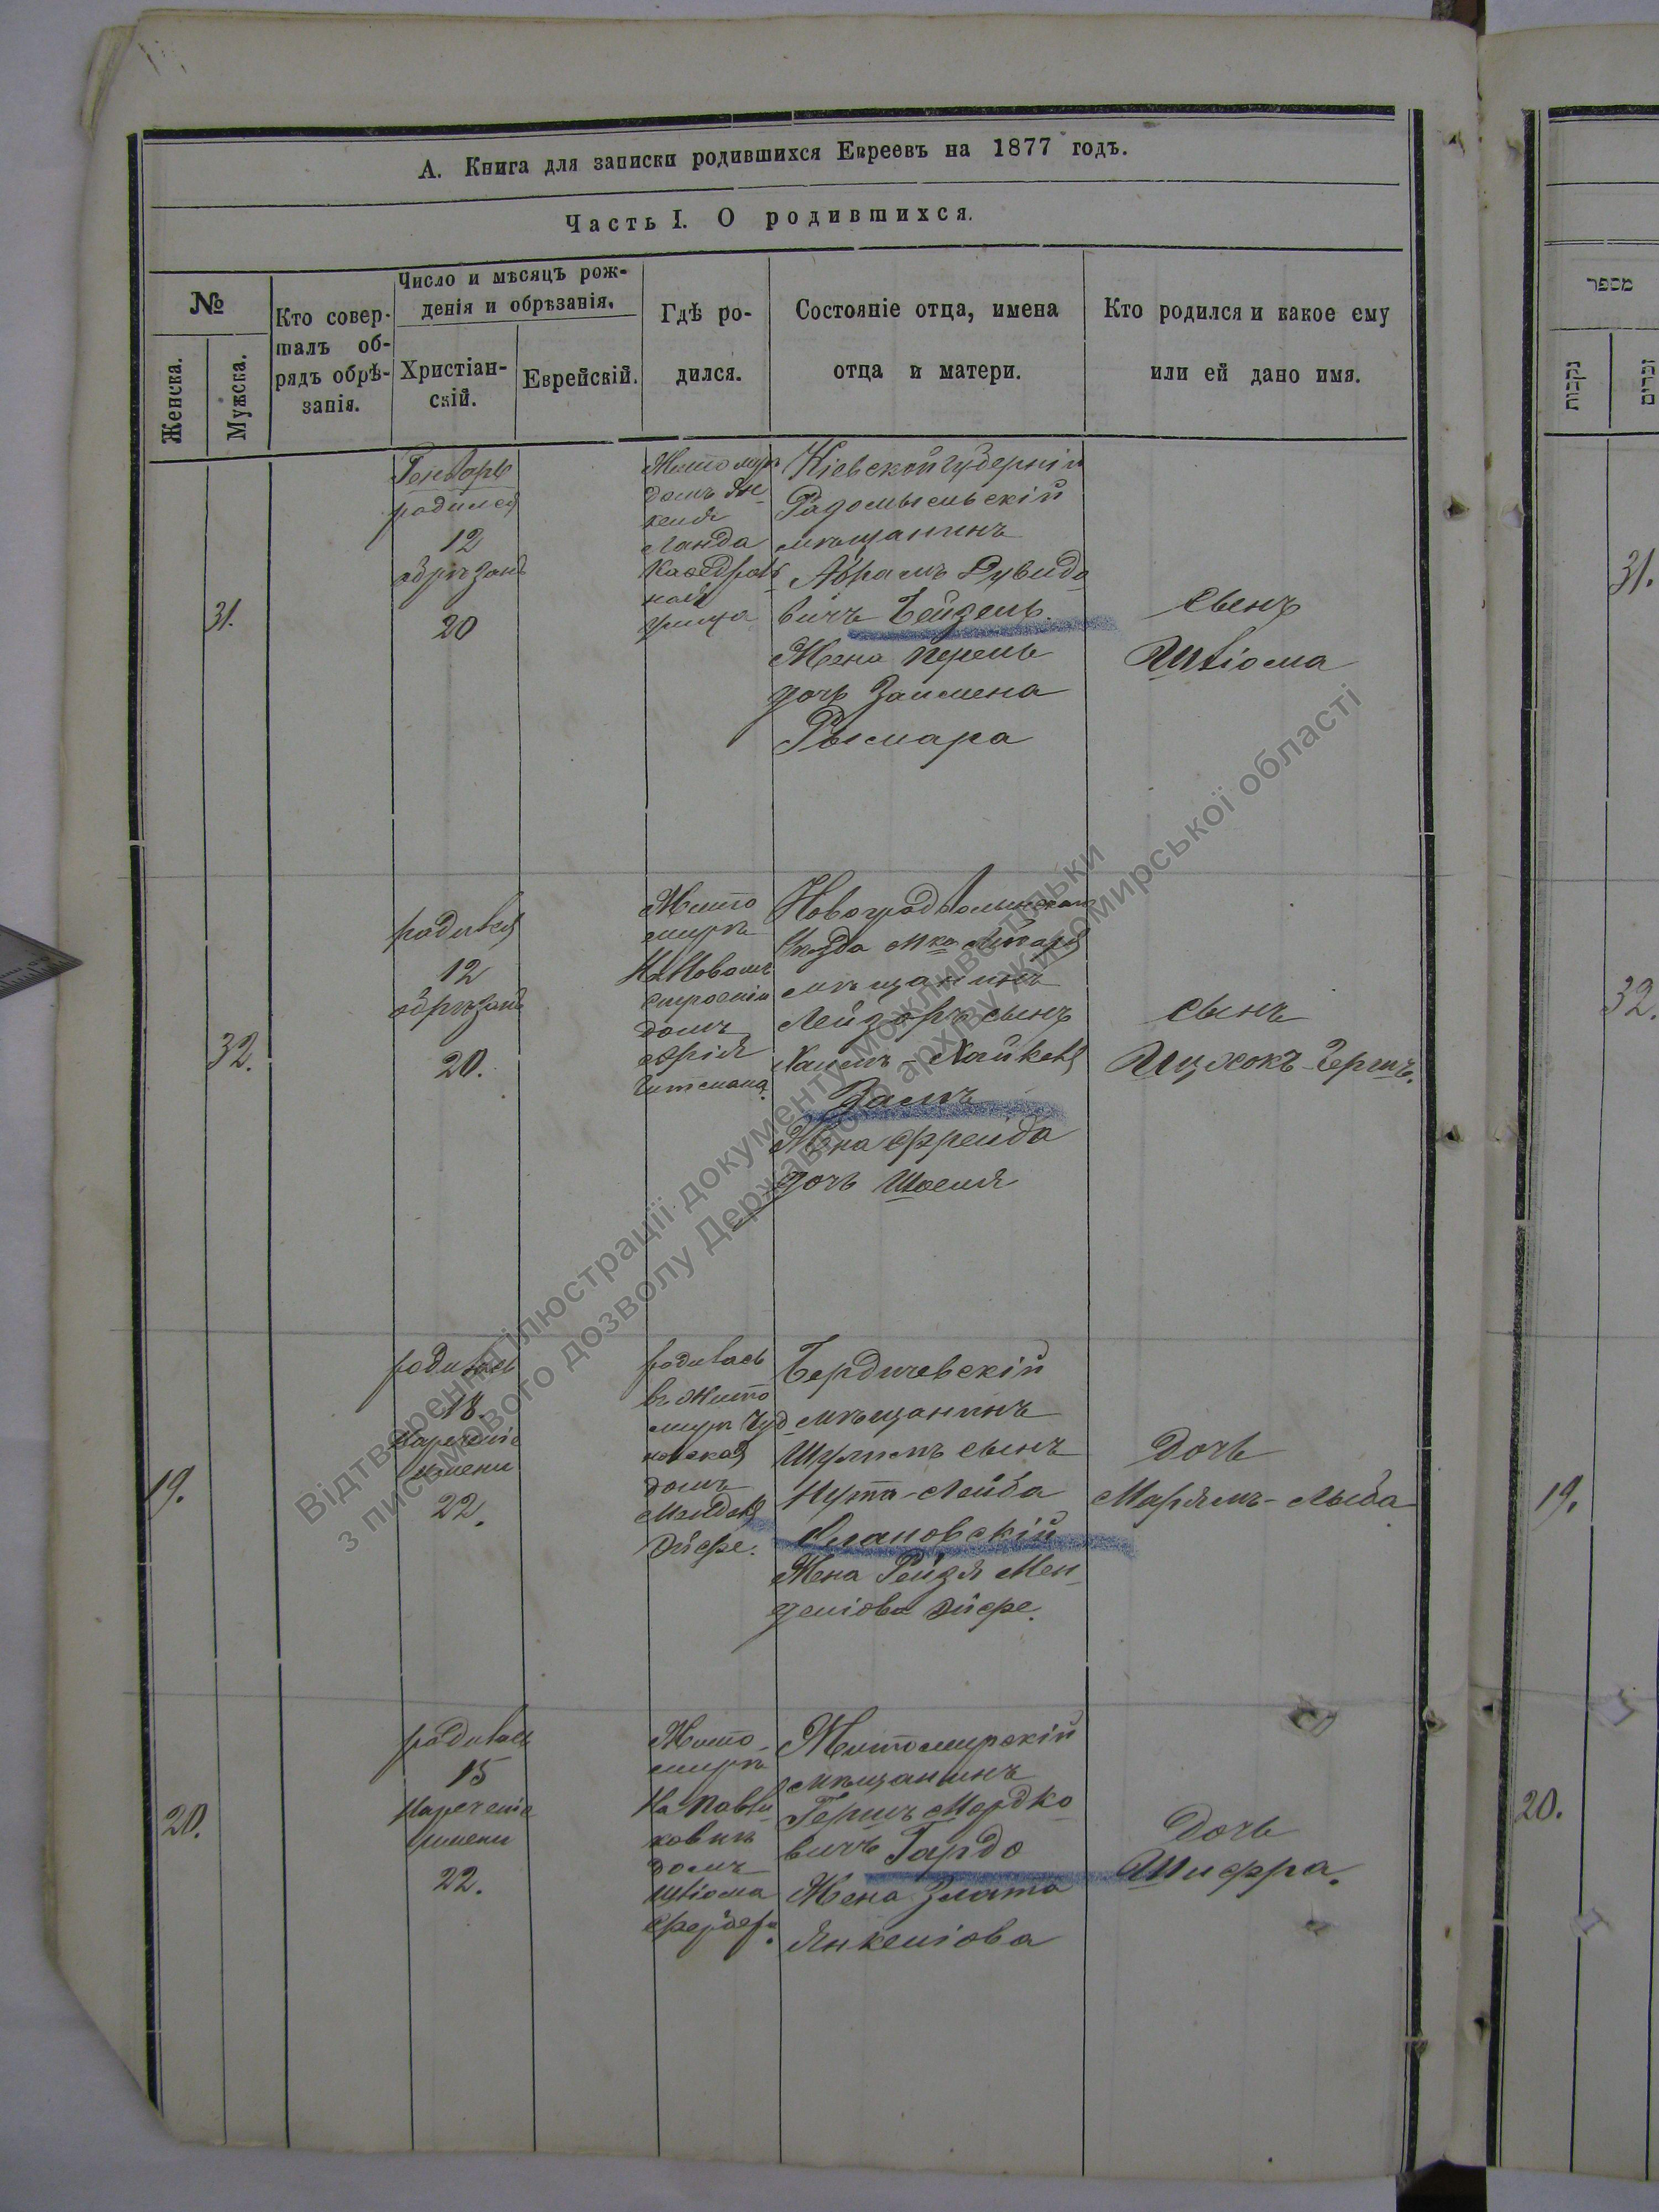 А. Книга для записки родившихся Евреевъ на 1877 годъ.
Часть I. О родившихся.
№
Женска.
Мужска.
Кто совер-
шалъ об-
рядъ обрѣ-
занія.
Число и мѣсяцъ рож-
денія и обрѣзанія.
Христіан-
скій.
Еврейскій.
Гдѣ ро-
дился.
Состояніе отца, имена
отца и матери.
Кто родился и какое ему
или ей дано имя.
31.
Генварь
родился
12
обрѣзанъ
20
Житомиръ
домъ Ян-
келя
Ланда
Кафедраль
ная
улица
Кіевской губерніи
Радомысльскій
мѣщанинъ
Абрамъ Дувидо
вичъ Бейдель.
Жена Перель
дочь Залмена
Рысмара
Сынъ
Шліома
32.
родился
12
обрѣзанъ
20.
Жито
миръ
На Новомъ
строеніи
домъ
Новоградволынскаго
уѣзда Мка
мѣщанинъ
Лейзоръ сынъ
Хаимъ-
Жена Фрейда
дочь
Сынъ
Ицхокъ-Гершъ.
19.
родилась
18.
Нареченіе
имени
22.
родилась
въ Жито
миръ Чуд
новская
домъ
Бердичевскій
мѣщанинъ
Шулимъ сынъ
Нута-Лейба
Улановскій
Жена Рейзя Мен-
деліова
Дочь
Марямъ-Лыба
20.
родилась
15
Нареченіе
имени
22.
Жито-
миръ
На Павли
ковкѣ
домъ
Шліома
Житомирскій
мѣщанинъ
Гершъ Мордко
вичъ Гардо
Жена Злата
Янкеліова
Дочь
Шифра.
מספר
נקבות
זכרים
31.
32.
19.
20.
Відтворення ілюстрації документу можливе тільки
з письмового дозволу Державного архіву Житомирської області